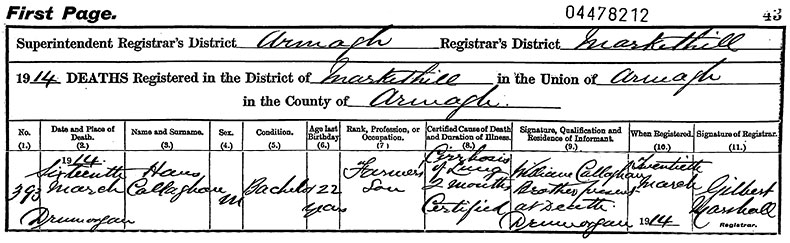 First Page. 04478212 43
Superintendent Registrar's District Armagh Registrar's District Markethill
1914 DEATHS Registered in the District of Markethill in the Union of Armagh
in the County of Armagh.
No. (1.) Date and Place of Death. (2.) Name and Surname. (3.) Sex. (4.) Condition. (5.) Age last Birthday. (6.) Rank, Profession, or Occupation. (7) Certified Cause of Death and Duration of Illness. (8.) Signature, Qualification and Residence of Informant. (9.) When Registered. (10.) Signature of Registrar. (11.)
393
1914
Sixteenth
March
Drumorgan
Hans
Callaghan
M
Bachelor
22
years
Farmers
Son
Cirrhosis
of Lung
2 months
Certified
William Callaghan
Brother present
at Death
Drumorgan
Twentieth
March
1914
Gilbert
Marshall
Registrar.